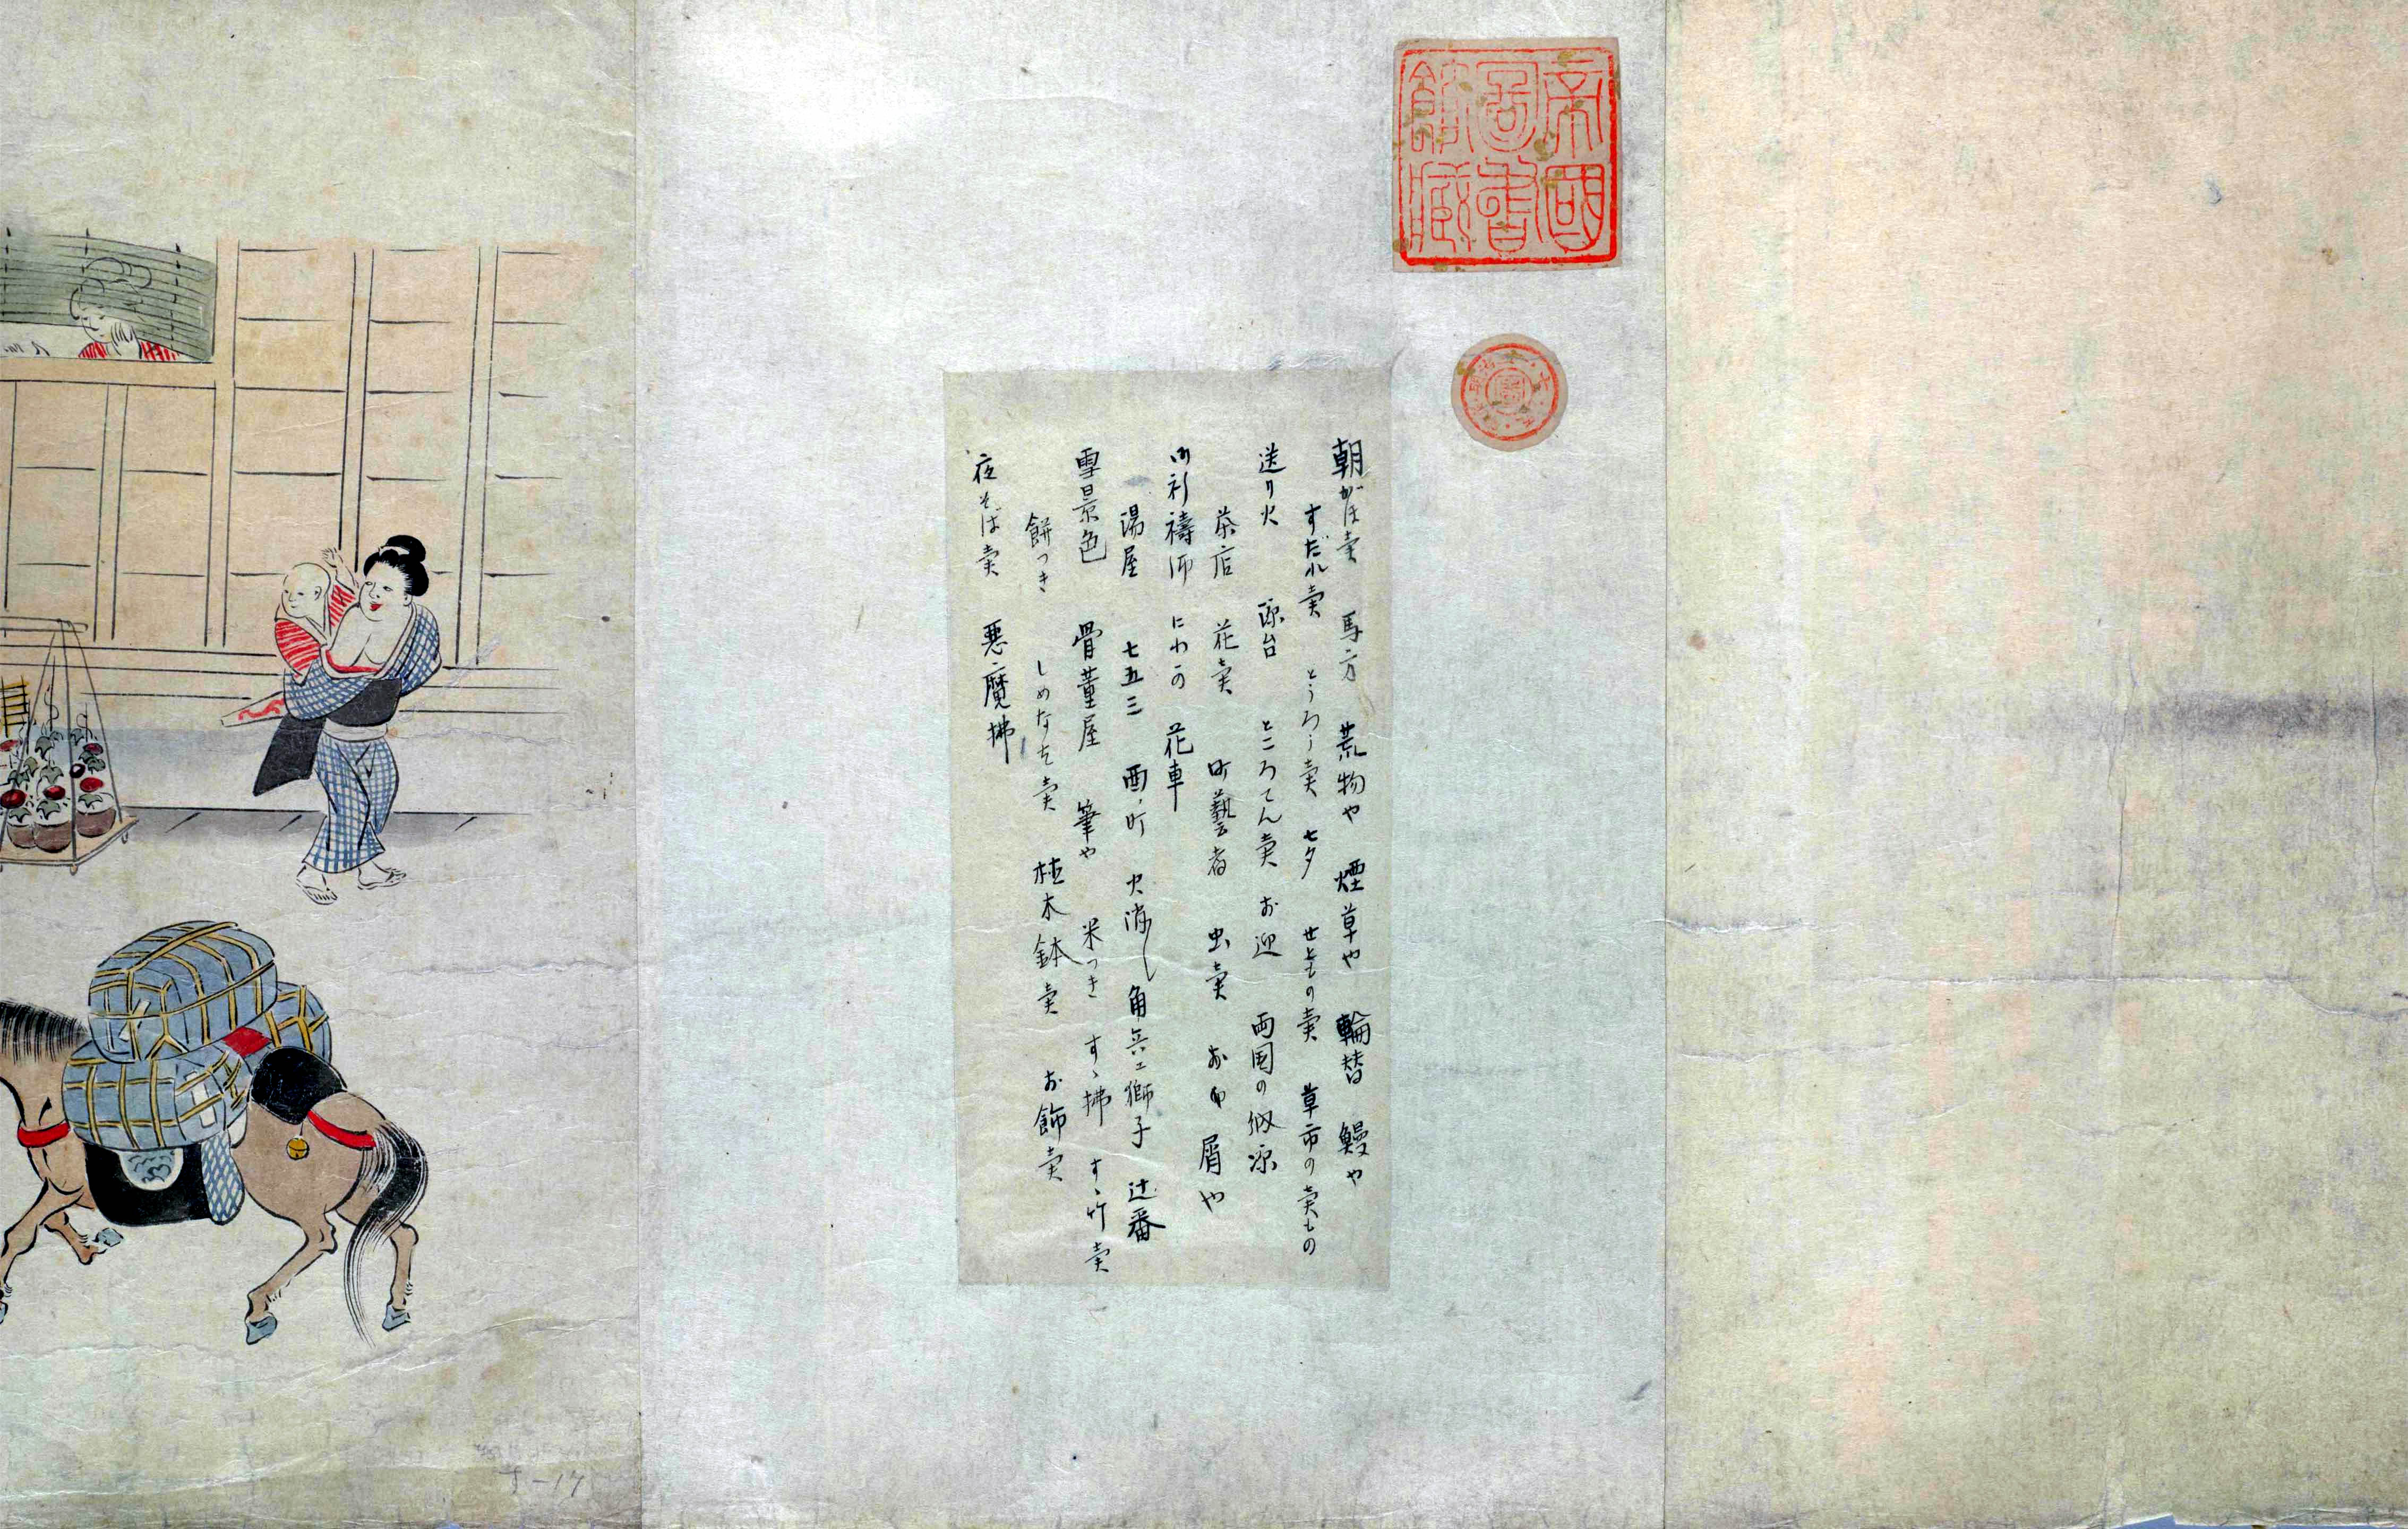 帝國
圖書
館藏
朝がほ賣 馬方 荒物や 煙草や 輪替 鰻や
すだれ賣 とうろう賣 七夕 せともの賣 草市の賣もの
送り火 涼台 ところてん賣 お迎 両国の納涼
茶店 花賣 町藝者 虫賣 屑や
御祈禱師 にわか 花車
湯屋 七五三 酉ノ町 火消し 角兵エ獅子 辻番
雪景色 骨董屋 筆や 米つき すゝ拂 すゝ竹賣
餅つき しめなわ賣 植木鉢賣 お飾賣
夜そば賣 悪魔拂